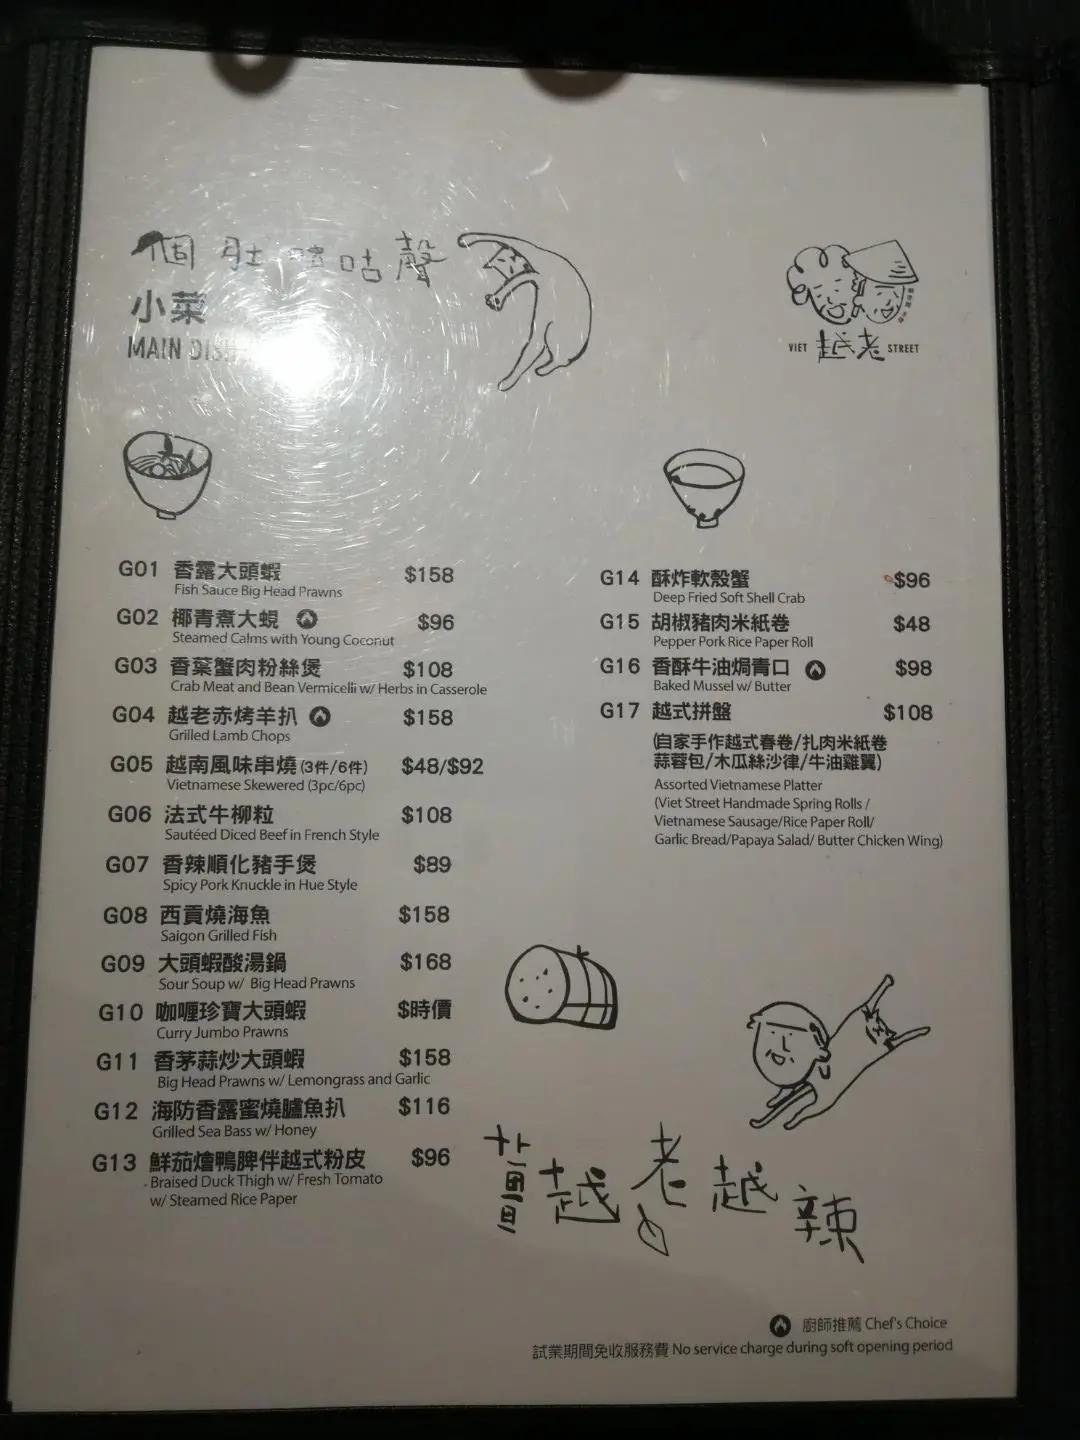 個肚 咕聲
小菜
MAIN DISH
VIET 越老 STREET
G01 香露大頭蝦 $158
Fish Sauce Big Head Prawns
G02 椰青煮大蜆 $96
Steamed Calms with Young Coconut
G03 香葉蟹肉粉絲煲 $108
Crab Meat and Bean Vermicelli w/ Herbs in Casserole
G04 越老赤烤羊扒 $158
Grilled Lamb Chops
G05 越南風味串燒(3件/6件) $48/$92
Vietnamese Skewered (3pc/6pc)
G06 法式牛柳粒 $108
Sautéed Diced Beef in French Style
G07 香辣順化豬手煲 $89
Spicy Pork Knuckle in Hue Style
G08 西貢燒海魚 $158
Saigon Grilled Fish
G09 大頭蝦酸湯鍋 $168
Sour Soup w/ Big Head Prawns
G10 咖喱珍寶大頭蝦 $時價
Curry Jumbo Prawns
G11 香茅蒜炒大頭蝦 $158
Big Head Prawns w/ Lemongrass and Garlic
G12 海防香露蜜燒鱸魚扒 $116
Grilled Sea Bass w/ Honey
G13 鮮茄燴鴨脾伴越式粉皮 $96
Braised Duck Thigh w/ Fresh Tomato
w/ Steamed Rice Paper
G14 酥炸軟殼蟹 $96
Deep Fried Soft Shell Crab
G15 胡椒豬肉米紙卷 $48
Pepper Pork Rice Paper Roll
G16 香酥牛油焗青口 $98
Baked Mussel w/ Butter
G17 越式拼盤 $108
(自家手作越式春卷/扎肉米紙卷
蒜蓉包/木瓜絲沙律/牛油雞翼)
Assorted Vietnamese Platter
(Viet Street Handmade Spring Rolls /
Vietnamese Sausage/Rice Paper Roll/
Garlic Bread/Papaya Salad/ Butter Chicken Wing)
越老越辣
廚師推薦 Chef's Choice
試業期間免收服務費 No service charge during soft opening period